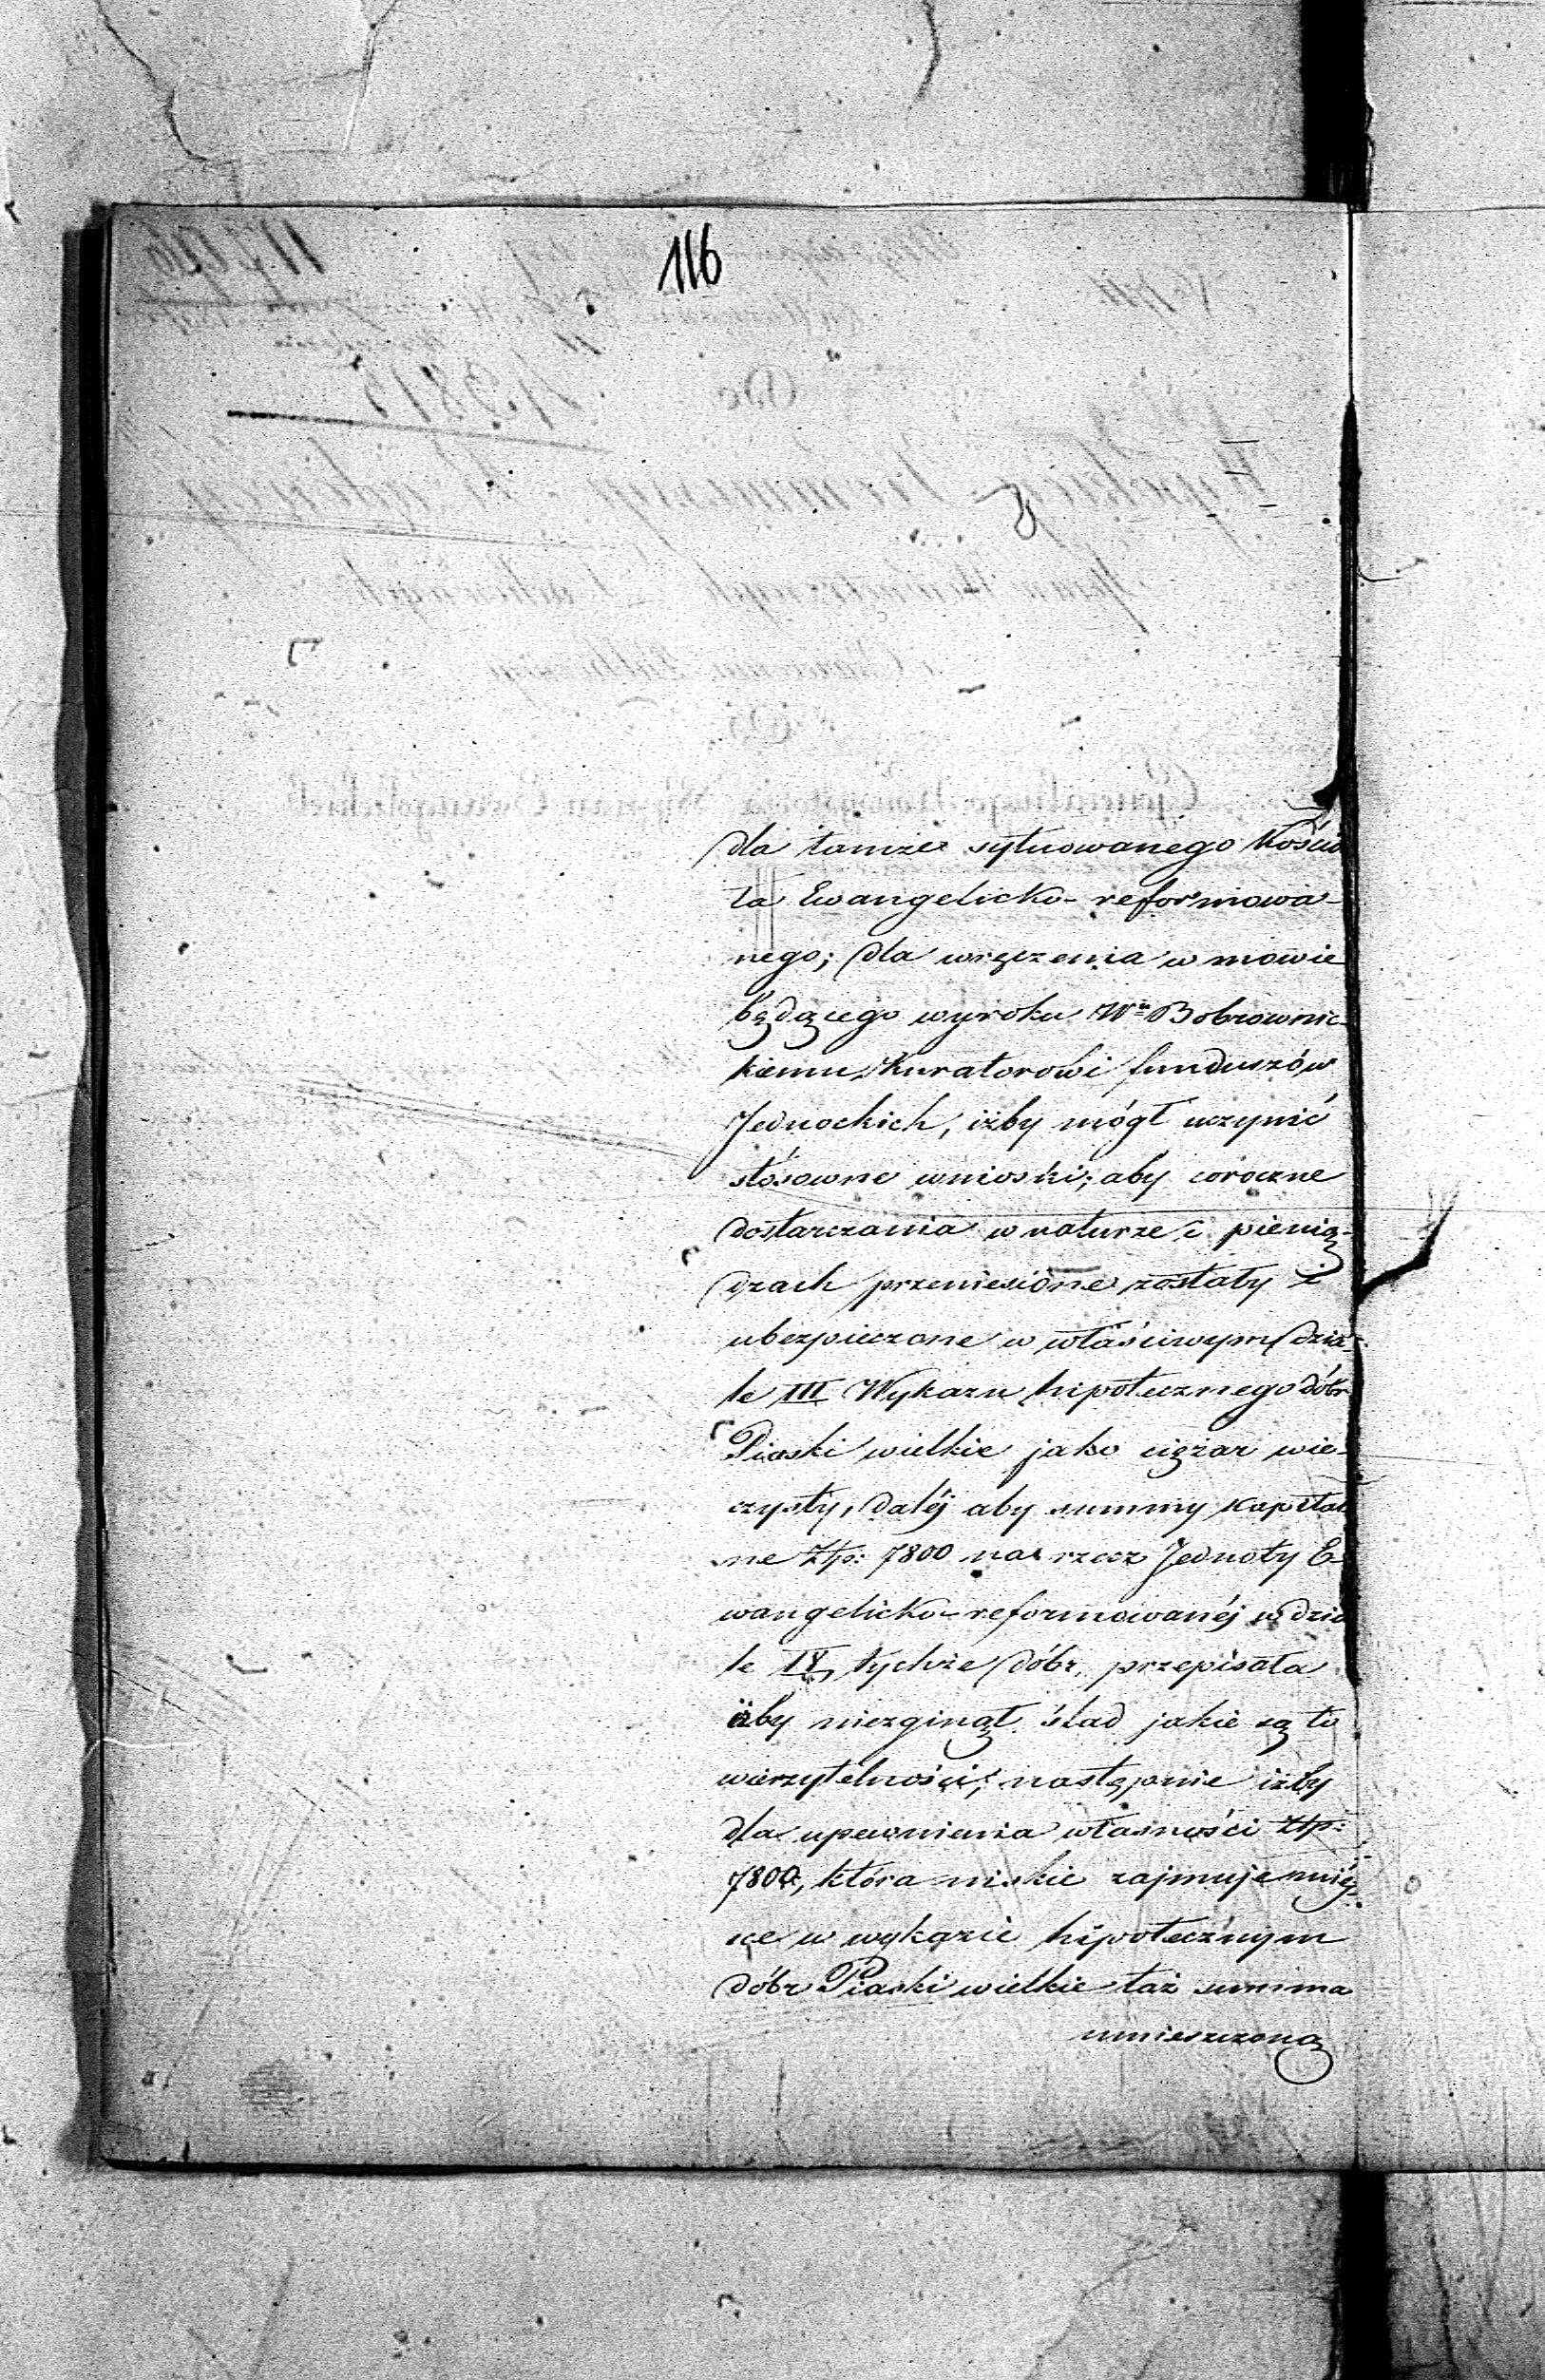 116
dla tamże sytuowanego Kościo
ła Ewangelicko-reformowa-
nego; dla wręczenia w mowie
będącego wyroku Wu Bobrownic-
kiemu Kuratorowi funduszów
Jednockich, iżby mógł uczynić
stósowne wnioski; aby coroczne
dostarczania w naturze i pienią-
dzach przeniesione zostały i
ubezpieczone w właściwym dzia-
le III Wykazu hipotecznego dóbr
Piaski wielkie jako ciężar wie-
czysty, daléj aby summy kapital
ne Złp: 7800 na rzecz Jednoty E-
wangelicko-reformowanéj w dzia
le IV, tychże dóbr, przepisała
iżby niezginął ślad jakie są to
wierzytelności; następnie iżby
dla upewnienia własności Złp:
7800, która niskie zajmuje miéj-
sce w wykazie hipotecznym
dóbr Piaski wielkie taż summa
umieszczoną